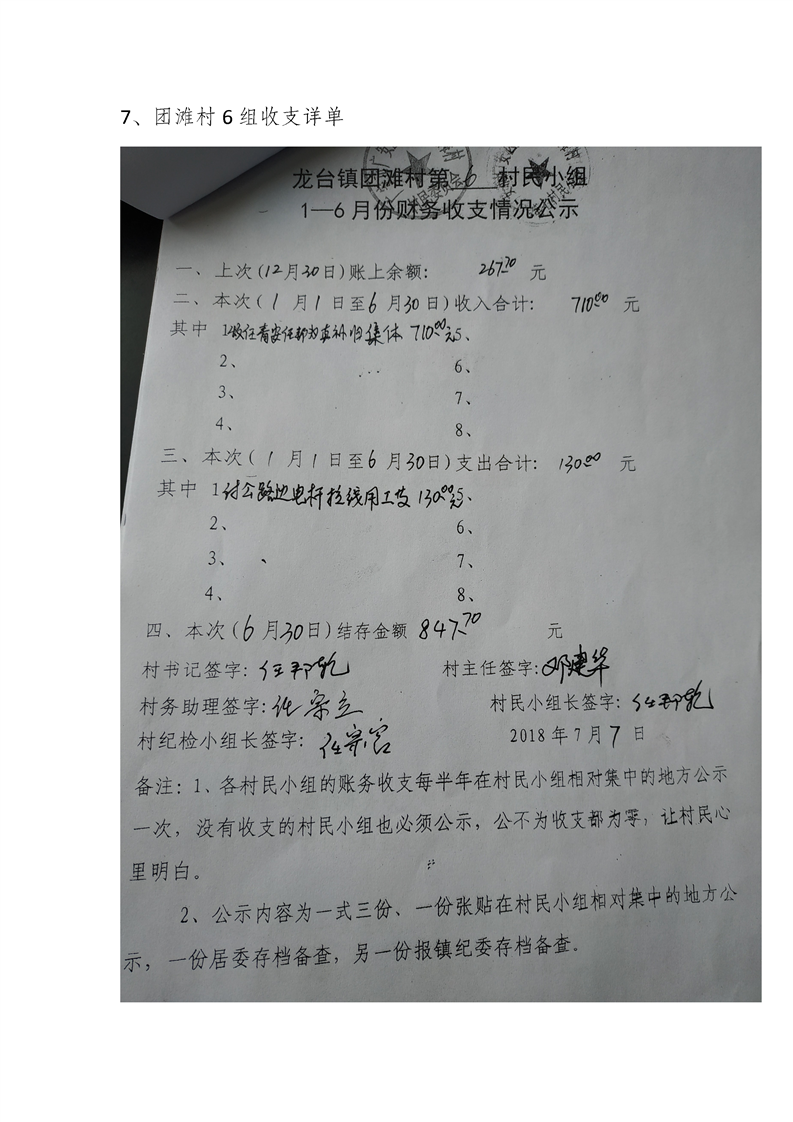 7、团滩村 6 组收支详单
龙台镇团滩村第 6 村民小组
1—6 月份财务收支情况公示
一、上次(12月30日)账上余额: 267.70 元
二、本次( 1 月 1 日至 6 月 30 日)收入合计: 710.00 元
其中 1、 归集体 710.00元 5、
2、 6、
3、 7、
4、 8、
三、本次( 1 月 1 日至 6 月 30 日)支出合计: 130.00 元
其中 1、付公路边电杆拉线用工费 130.00元 5、
2、 6、
3、 7、
4、 8、
四、本次( 6 月 30 日)结存金额 847.70 元
村书记签字: 任邦乾 村主任签字: 邓建华
村务助理签字: 任宗立 村民小组长签字: 任邦乾
村纪检小组长签字: 2018 年 7 月 7 日
备注: 1、各村民小组的账务收支每半年在村民小组相对集中的地方公示
一次, 没有收支的村民小组也必须公示, 公不为收支都为零, 让村民心
里明白。
2、公示内容为一式三份、一份张贴在村民小组相对集中的地方公
示, 一份居委存档备查, 另一份报镇纪委存档备查。